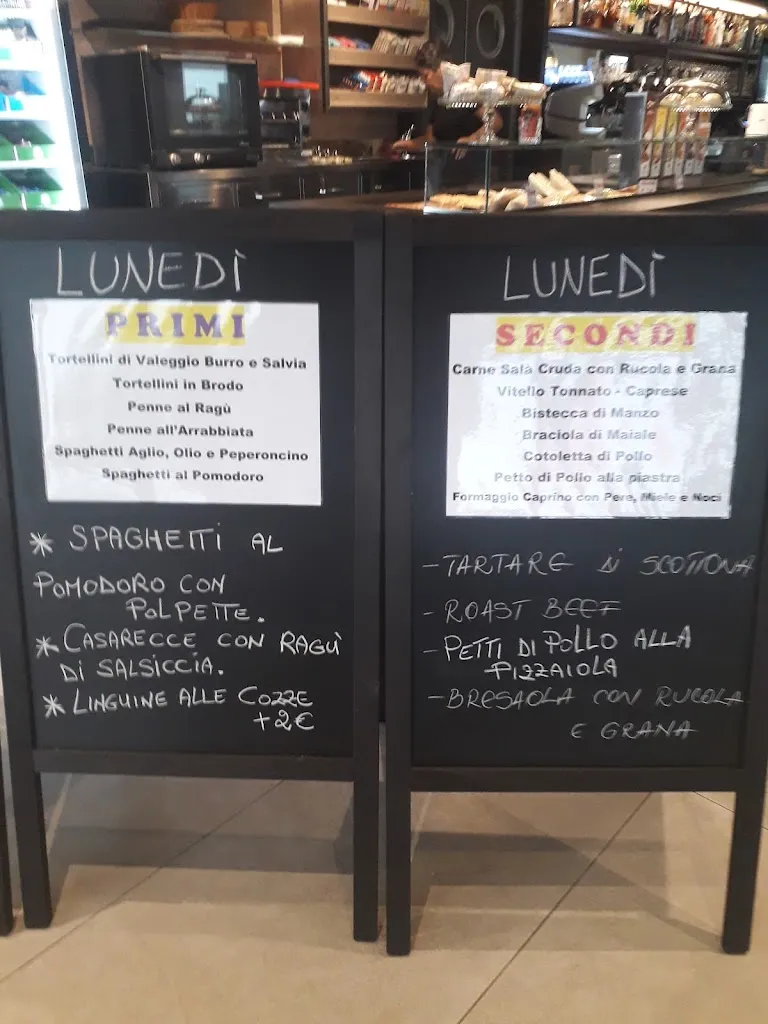 LUNEDÌ
PRIMI
Tortellini di Valeggio Burro e Salvia
Tortellini in Brodo
Penne al Ragù
Penne all'Arrabbiata
Spaghetti Aglio, Olio e Peperoncino
Spaghetti al Pomodoro
* SPAGHETTI AL
POMODORO CON
POLPETTE.
* CASARECCE CON RAGÙ
DI SALSICCIA.
* LINGUINE ALLE COZZE
+2€
LUNEDÌ
SECONDI
Carne Salà Cruda con Rucola e Grana
Vitello Tonnato - Caprese
Bistecca di Manzo
Braciola di Maiale
Cotoletta di Pollo
Petto di Pollo alla piastra
Formaggio Caprino con Pere, Miele e Noci
- TARTARE DI SCOTTONA
- ROAST BEEF
- PETTI DI POLLO ALLA
PIZZAIOLA
- BRESAOLA CON RUCOLA
E GRANA